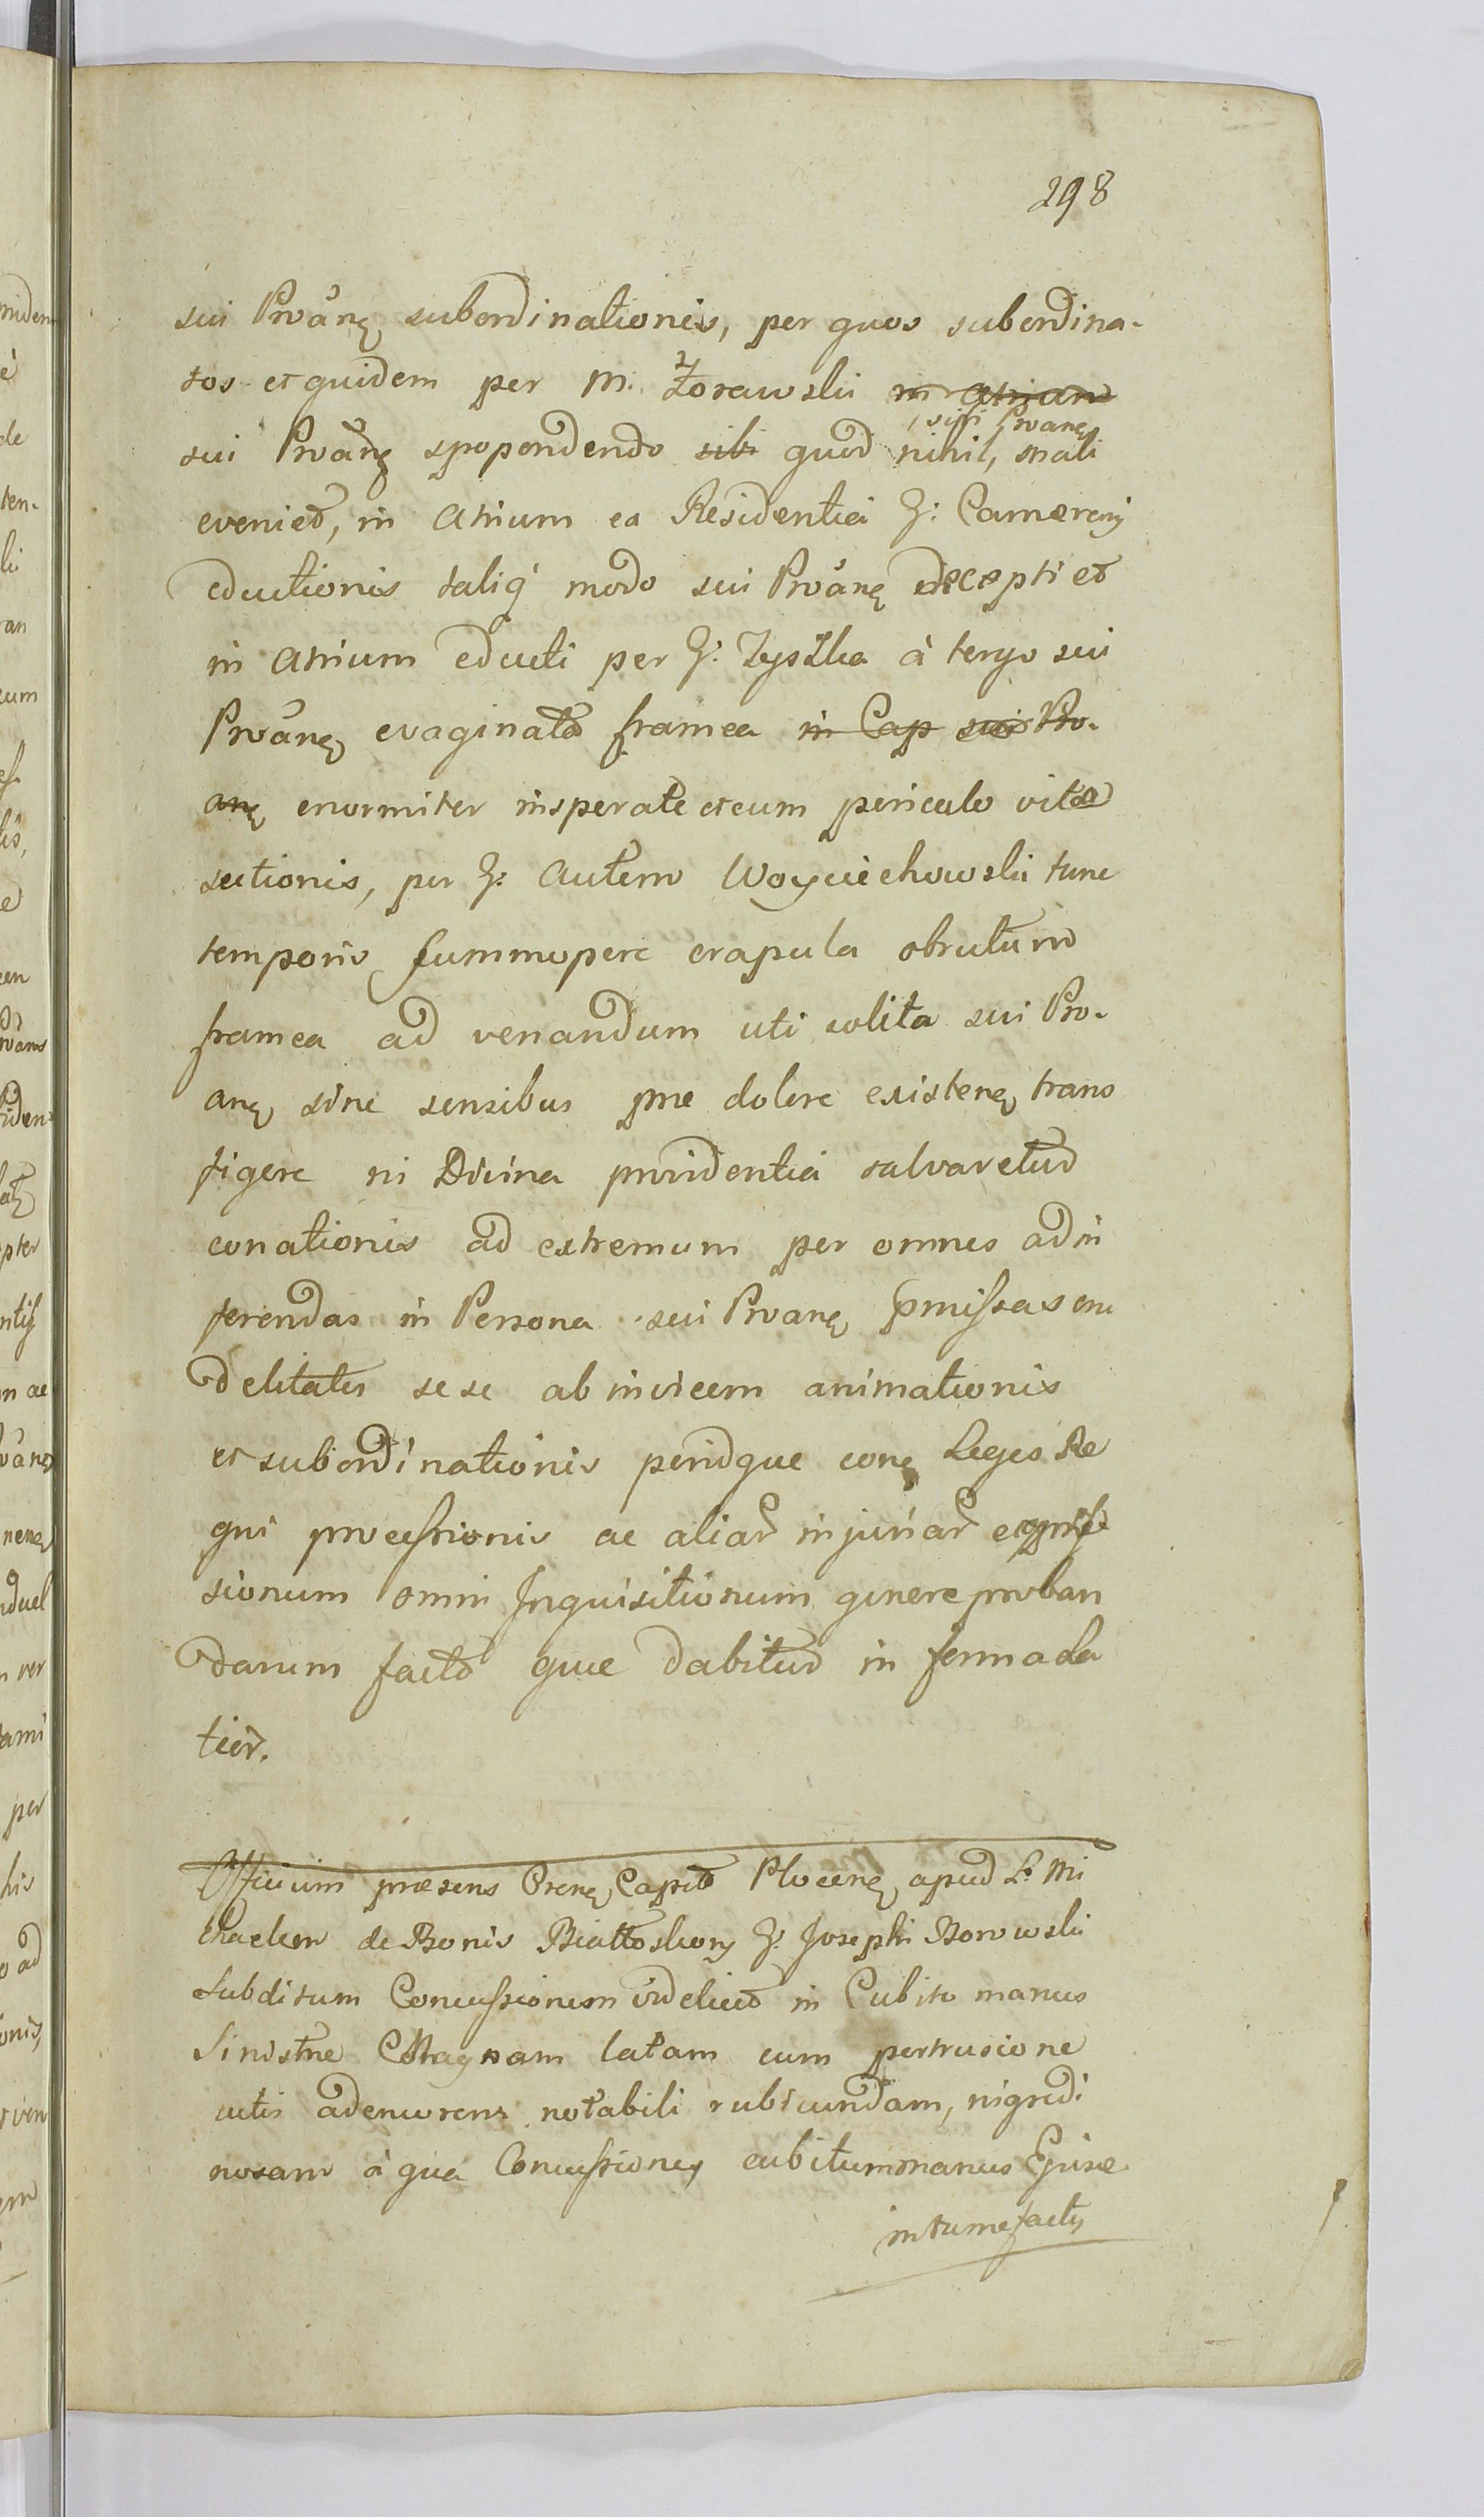 298
sui Proãnę subordinationis, per quos subordina-
tos et quidem per M. Żorawski in Atrium
sui Proãnę spopondendo sibi quod nihil, mali
sui Proanę
eveniet, in Atrium ea Residentia G: Camerarij
eductionis taliq modo sui Proãnę decepti et
in Atrium educti per G: Zyszka à tergo sui
Proãnę evaginata framea in Cap sui Pro-
anę enormiter insperate et cum periculo vitæ
sectionis, per G: autem Woyciechowski tunc
temporis summopere crapula obrutum
framea ad venandum uti solita sui Pro-
anę sine sensibus præ dolore existenę trans
figere ni Divina providentia salvaretur
conationis ad extremum per omnes ad in
ferendas in Persona sui Proanę pmissas cru
delitates sese ab invicem animationis
et subordinationis peridque conę Leges Re
gni processionis ac aliar injuriar
sionum omni Inquisitionum genere proban
darum facto quæ dabitur in forma la
tior.
Officium præsens Crenę Capit Plocenę apud L. Mi
chaelem de Bonis Białoskory G: Josephi Borowski
Subditum Concussionem videlicet in Cubito manus
Sinistræ Magnam latam cum pertrusione
cutis notabili rubicundam, nigredi
nosam à qua Concussione cubitum manus Ejusce
intumefactę